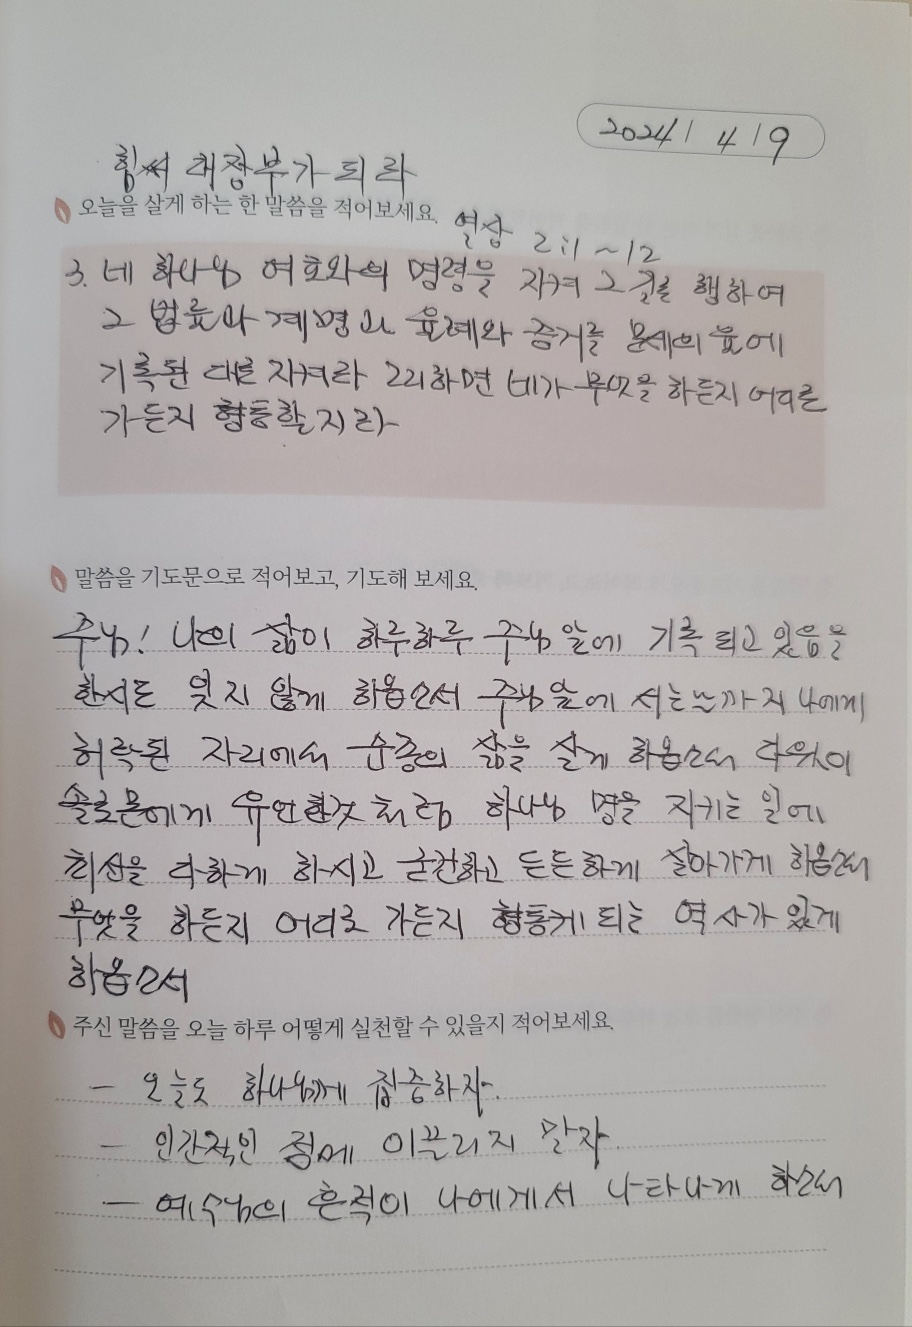 2024 / 4 / 9
힘써 대장부가 되라
오늘을 살게 하는 한 말씀을 적어보세요.
열상 2:1~12
3. 네 하나님 여호와의 명령을 지켜 그 길로 행하여
그 법률과 계명과 율례와 증거를 모세의 율에
기록된 대로 지켜라 그리하면 네가 무엇을 하든지 어디로
가든지 형통할지라
말씀을 기도문으로 적어보고, 기도해 보세요.
주님! 나의 삶이 하루하루 주님 앞에 기록 되고 있음을
한시도 잊지 않게 하옵소서 주님 앞에 서는 까지 나에게
허락된 자리에서 순종의 삶을 살게 하옵소서 다윗이
솔로몬에게 유언한것 처럼 하나님 명을 지키는 일에
최선을 다하게 하시고 굳건하고 든든하게 살아가게 하옵소서
무엇을 하든지 어디로 가든지 형통케 되는 역사가 있게
하옵소서
주신 말씀을 오늘 하루 어떻게 실천할 수 있을지 적어보세요.
- 오늘도 하나님께 집중하자.
- 인간적인 정에 이끌리지 말자.
- 예수님의 흔적이 나에게서 나타나게 하소서